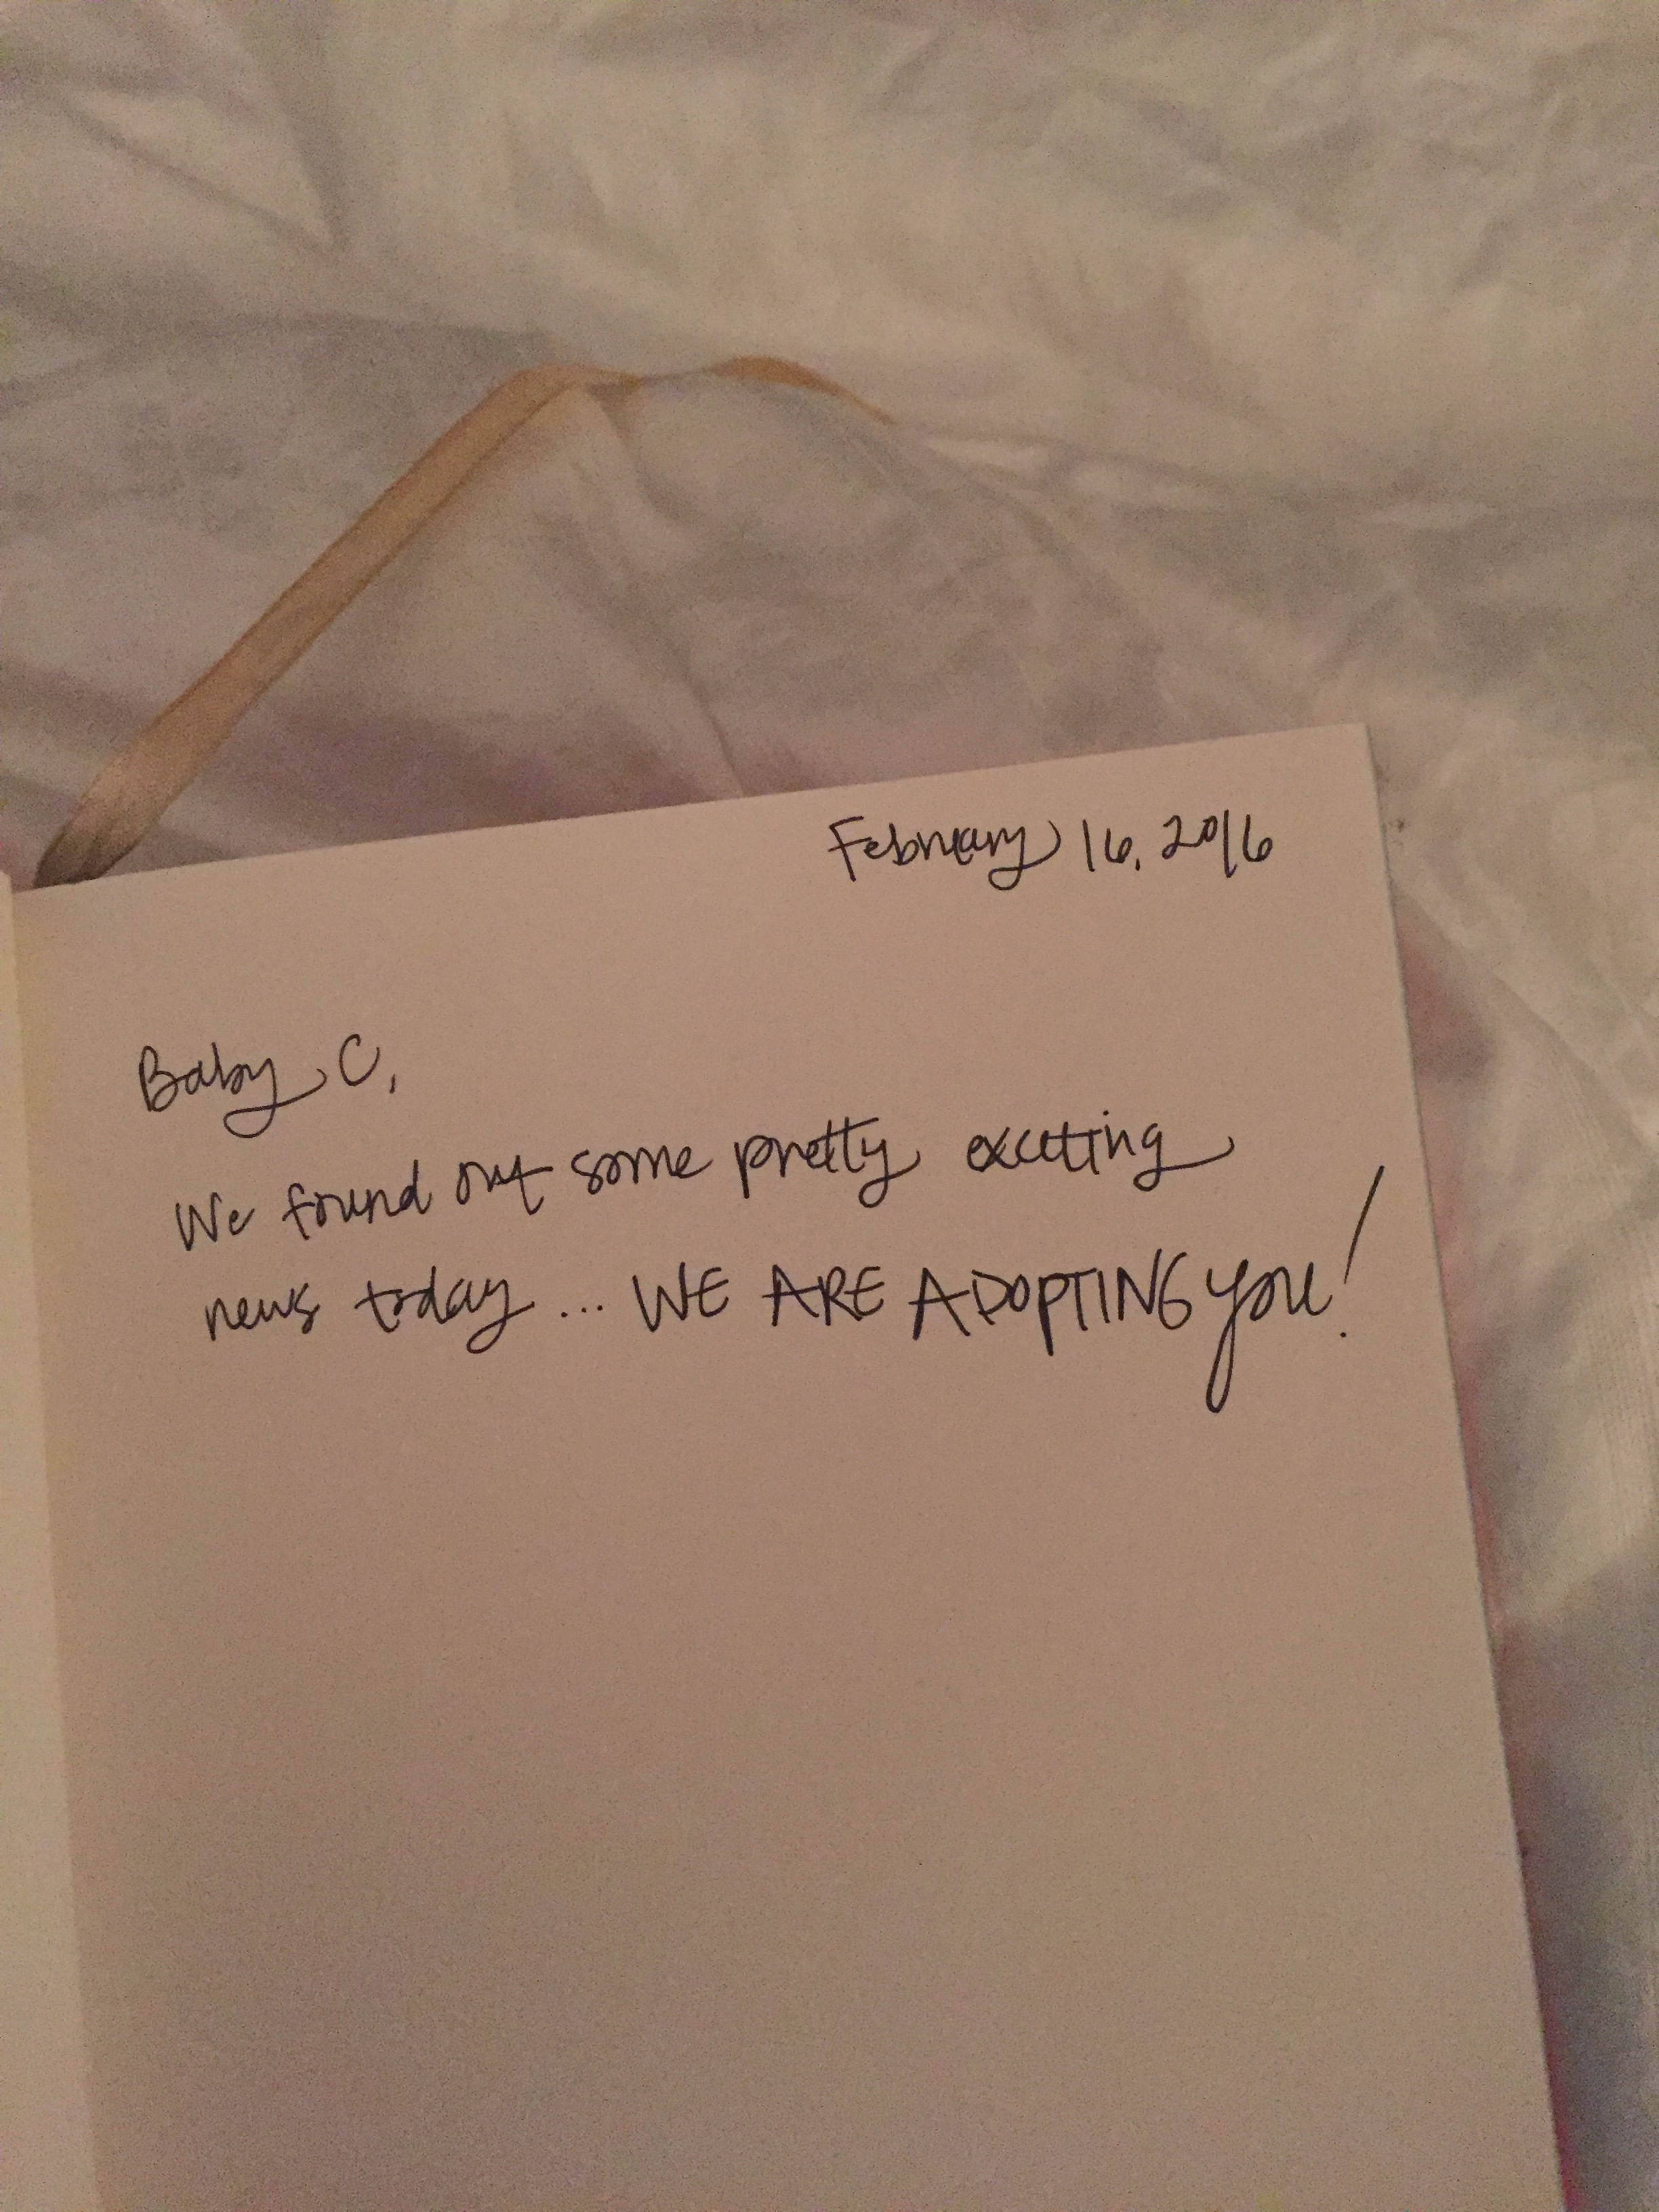 February 16, 2016
Baby C,
We found out some pretty exciting
news today... WE ARE ADOPTING you!